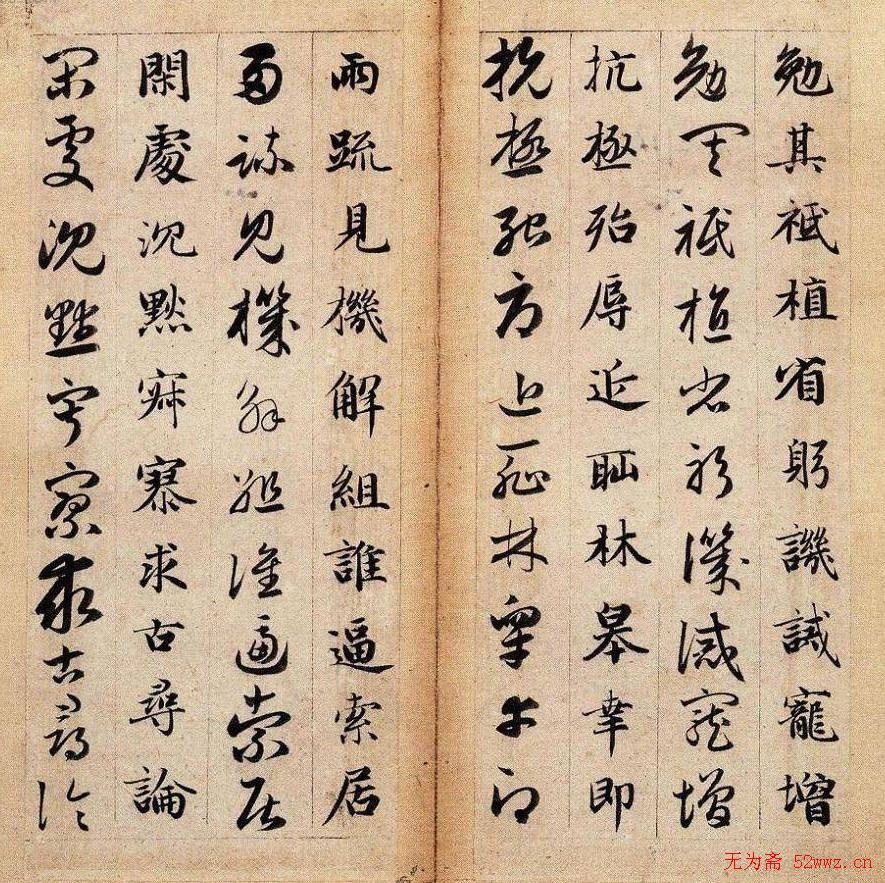 勉其祗植省躬譏誡寵增
勉其祗植省躬譏誡寵增
抗極殆辱近恥林皋幸即
抗極殆辱近恥林皋幸即
兩疏見機解組誰逼索居
兩疏見機解組誰逼索居
閑處沉默寂寥求古尋論
閑處沉默寂寥求古尋論
无为斋 52wwz.cn